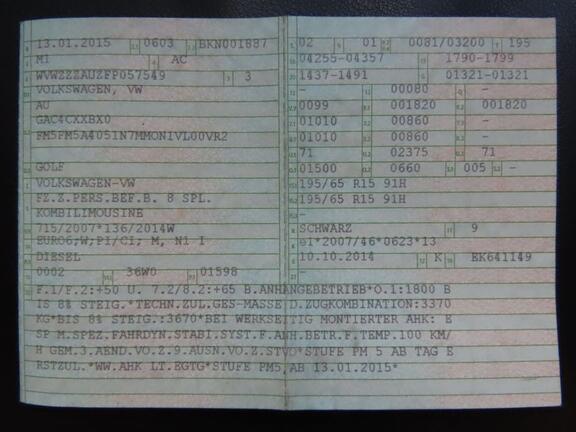 13.01.2015 0603 BKN001887
M1 AC
WVWZZZAUZFP057549 3
VOLKSWAGEN, VW
AU
GAC4CXXBX0
FM5FM5A4051N7MMON1VL00VR2
GOLF
VOLKSWAGEN-VW
FZ.Z.PERS.BEF.B. 8 SPL.
KOMBILIMOUSINE
715/2007*136/2014W
EURO6;W;PI/CI; M, N1 I
DIESEL
0002 36W0 01598
02 01 0081/03200 195
04255-04357 1790-1799
1437-1491 01321-01321
- 00080 -
0099 001820 001820
01010 00860 -
01010 00860 -
71 02375 71
01500 0660 005 -
195/65 R15 91H
195/65 R15 91H
-
SCHWARZ 9
e1*2007/46*0623*13
10.10.2014 K EK641149
-
F.1/F.2:+50 U. 7.2/8.2:+65 B.ANHÄNGEBETRIEB*O.1:1800 B
IS 8% STEIG.*TECHN.ZUL.GES-MASSE D.ZUGKOMBINATION:3370
KG*BIS 8% STEIG.:3670*BEI WERKSEITIG MONTIERTER AHK: E
SP M.SPEZ.FAHRDYN.STABI.SYST.F.ANH.BETR.F.TEMP.100 KM/
H GEM.3.AEND.VO.Z.9.AUSN.VO.Z.STVO*STUFE PM 5 AB TAG E
RSTZUL.*WW.AHK LT.EGTG*STUFE PM5 AB 13.01.2015*